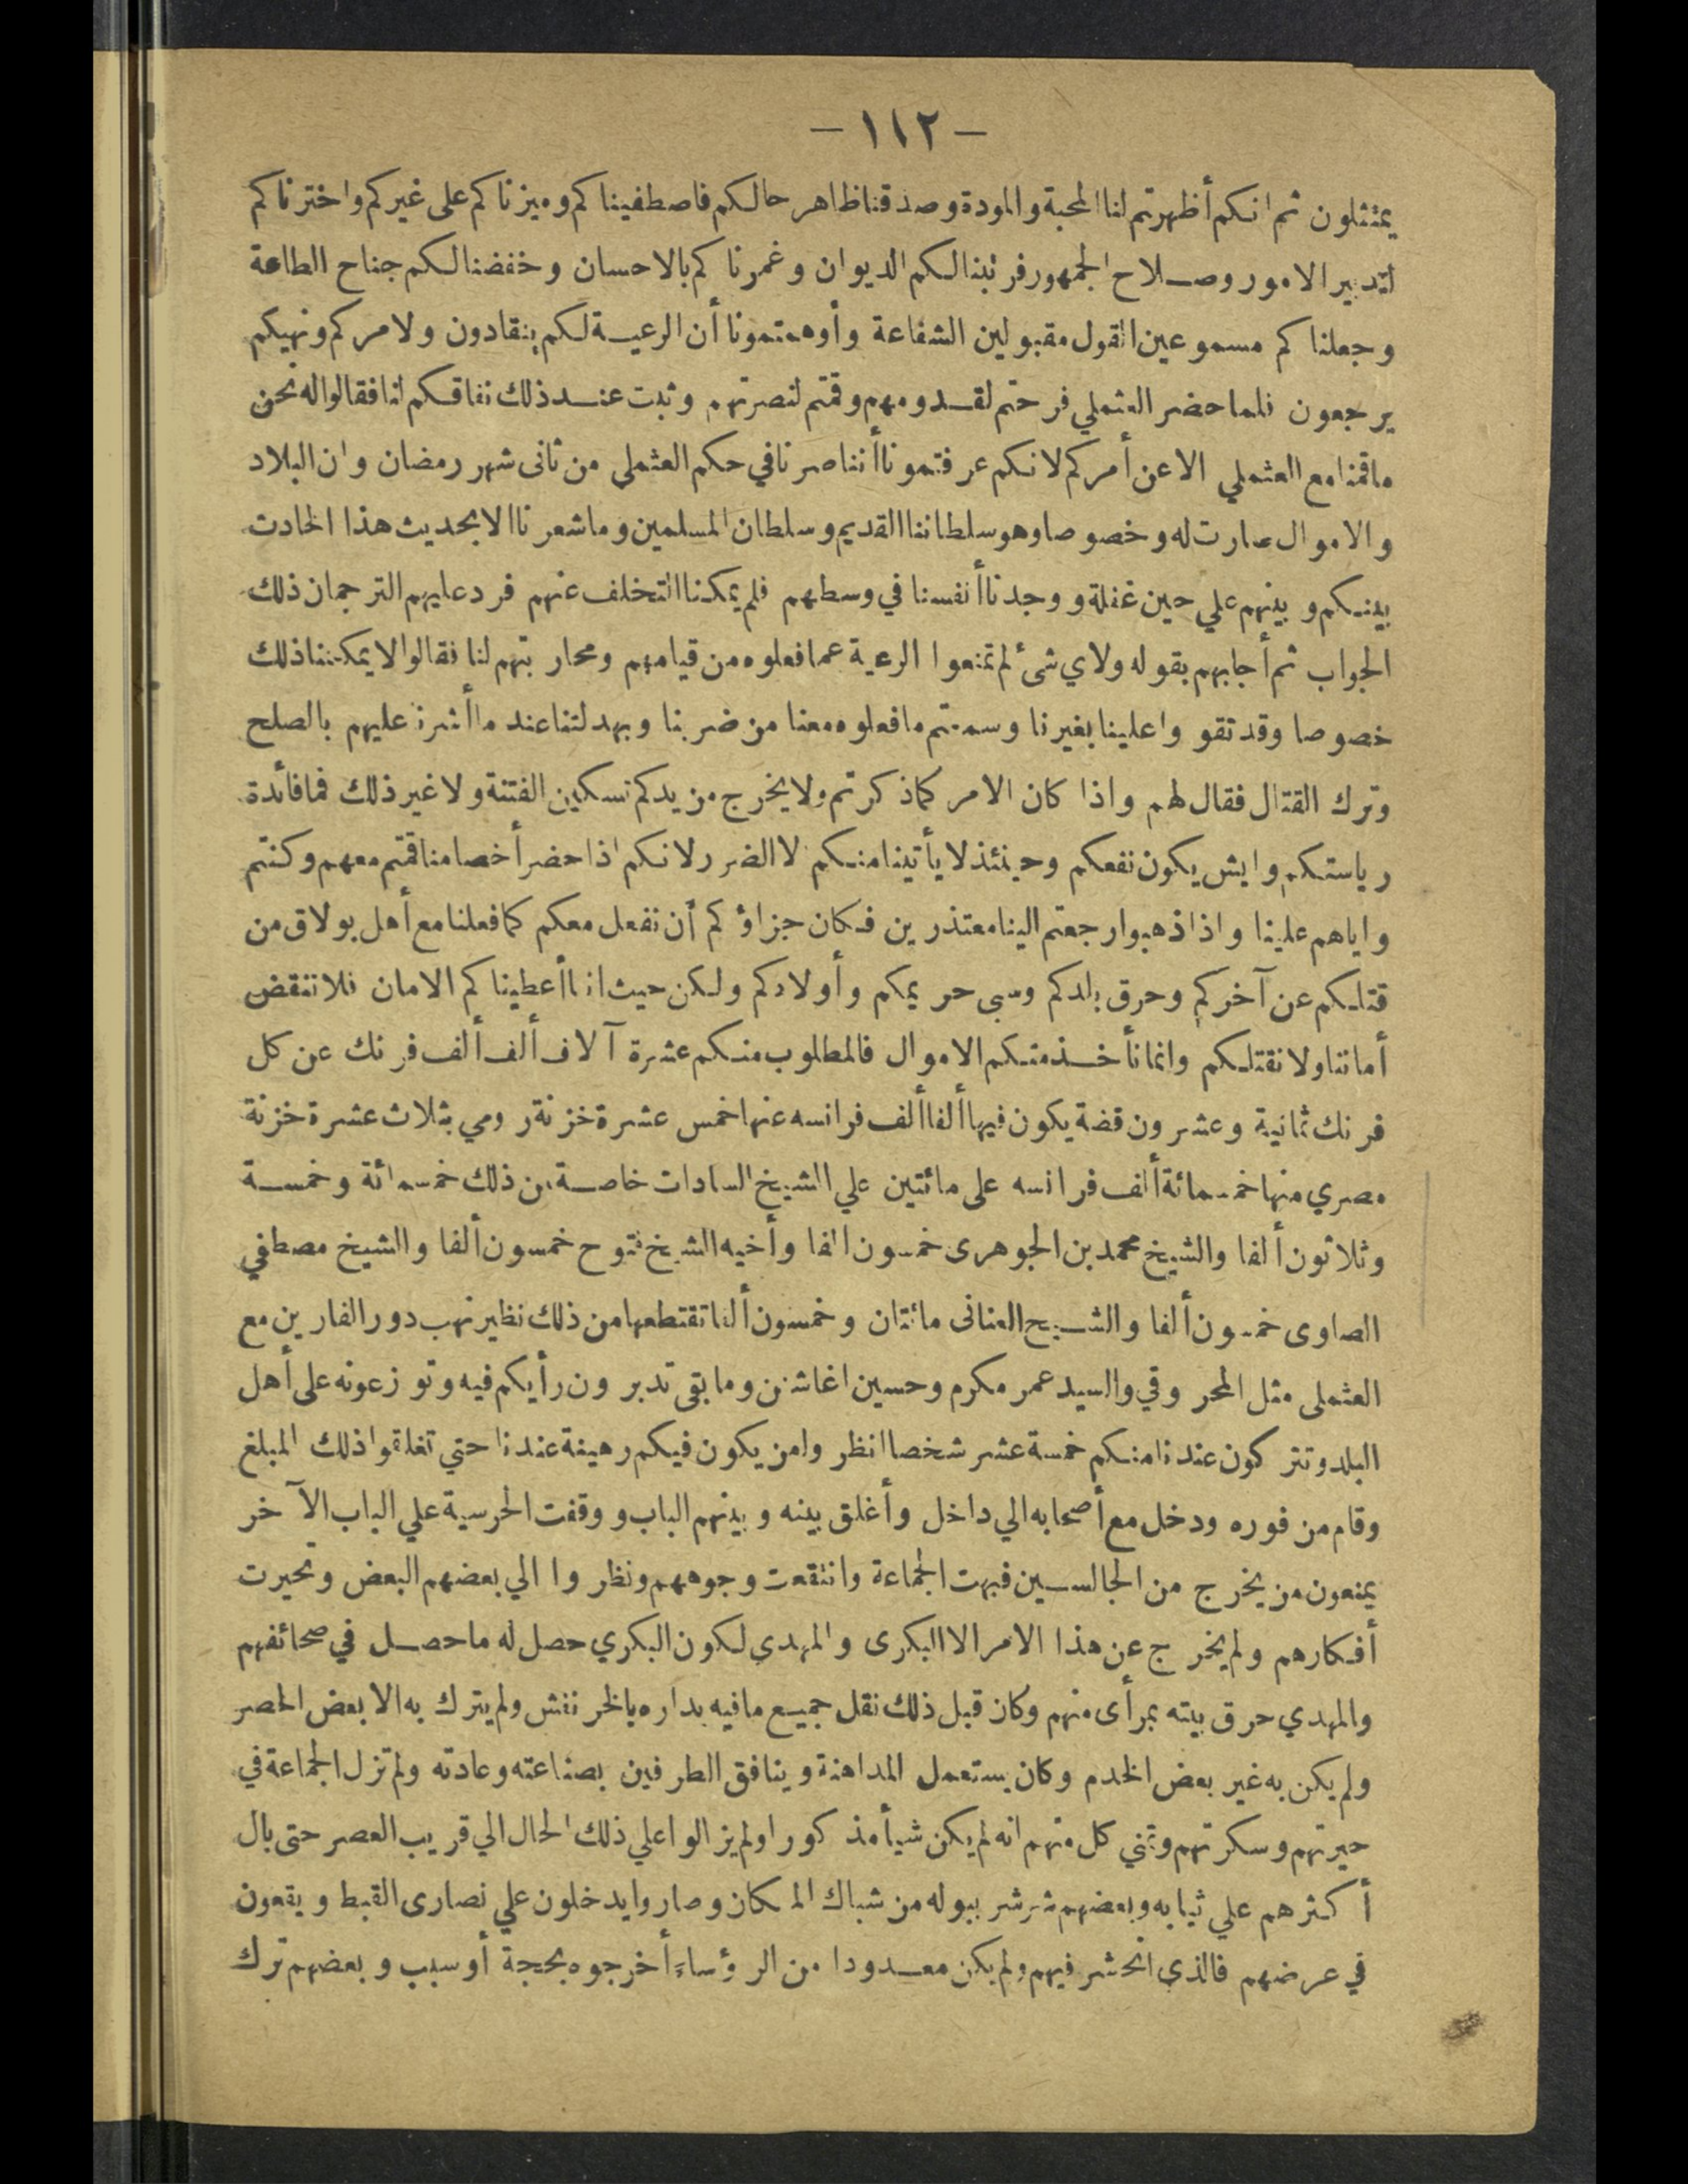 — ١١٢ —
يمتثلون ثم انكم أظهرتم لنا المحبة والمودة وصدقنا ظاهر حالكم فاصطفيناكم وميزناكم على غيركم واخترناكم
لتدبير الامور وصلاح الجمهور فرتبنا لكم الديوان وغمرناكم بالاحسان وخفضنا لكم جناح الطاعة
وجعلناكم مسموعين القول مقبولين الشفاعة وأوهمتمونا أن الرعية لكم ينقادون ولامركم ونهيكم
يرجعون فلما حضر العثملي فرحتم لقدومهم وقمتم لنصرتهم وثبت عند ذلك نفاقكم لنا فقالوا له نحن
ماقمنا مع العثملي الا عن أمركم لانكم عرفتمونا أننا صرنا في حكم العثملي من ثانى شهر رمضان وان البلاد
والاموال صارت له وخصوصا وهو سلطاننا القديم وسلطان المسلمين وما شعرنا الا بحديث هذا الحادث
بينكم وبينهم علي حين غفلة ووجدنا أنفسنا في وسطهم فلم يمكنا التخلف عنهم فرد عليهم الترجمان ذلك
الجواب ثم أجابهم بقوله ولاي شئ لم تمنعوا الرعية عما فعلوه من قيامهم ومحاربتهم لنا فقالوا لا يمكننا ذلك
خصوصا وقد تقووا علينا بغيرنا وسمعتم ما فعلوه معنا من ضربنا وبهدلتنا عند ما أشرنا عليهم بالصلح
وترك القتال فقال لهم واذا كان الامر كما ذكرتم ولا يخرج من يدكم تسكين الفتنة ولا غير ذلك فما فائدة
رياستكم وايش يكون نفعكم وحينئذ لا يأتينا منكم الا الضرر لانكم اذا حضر أخصامنا قمتم معهم وكنتم
واياهم علينا واذا ذهبوا رجعتم الينا معتذرين فكان جزاؤكم أن نفعل معكم كما فعلنا مع أهل بولاق من
قتلكم عن آخركم وحرق بلدكم وسبي حريمكم وأولادكم ولكن حيث اننا أعطيناكم الامان فلا ننقض
أماننا ولا نقتلكم وانما نأخذ منكم الاموال فالمطلوب منكم عشرة آلاف ألف ألف فرنك عن كل
فرنك ثمانية وعشرون فضة يكون فيها ألفا ألف فرانسه عنها خمس عشرة خزنة رومي بثلاث عشرة خزنة
مصري منها خمسمائة ألف فرانسه على مائتين علي الشيخ السادات خاصة من ذلك خمسمائة وخمسة
وثلاثون ألفا والشيخ محمد بن الجوهرى خمسون الفا وأخيه الشيخ فتوح خمسون ألفا والشيخ مصطفي
الصاوى خمسون ألفا والشيخ العنانى مائتان وخمسون ألفا تقتطعها من ذلك نظير نهب دور الفارين مع
العثملى مثل المحروقي والسيد عمر مكرم وحسين اغا شنن وما بقى تدبرون رأيكم فيه وتوزعونه على أهل
البلد وتتركون عندنا منكم خمسة عشر شخصا انظروا من يكون فيكم رهينة عندنا حتي تغلقوا ذلك المبلغ
وقام من فوره ودخل مع أصحابه الي داخل وأغلق بينه وبينهم الباب ووقفت الحرسية علي الباب الآخر
يمنعون من يخرج من الجالسين فبهت الجماعة وانتقعت وجوههم ونظروا الي بعضهم البعض وتحيرت
أفكارهم ولم يخرج عن هذا الامر الا البكرى والمهدي لكون البكري حصل له ما حصل في صحائفهم
والمهدي حرق بيته بمرأى منهم وكان قبل ذلك نقل جميع ما فيه بداره بالخرنفش ولم يترك به الا بعض الحصر
ولم يكن به غير بعض الخدم وكان يستعمل المداهنة وينافق الطرفين بصناعته وعادته ولم تزل الجماعة في
حيرتهم وسكرتهم وتمني كل منهم انه لم يكن شيأ مذكورا ولم يزالوا علي ذلك الحال الي قريب العصر حتى بال
أكثرهم علي ثيابه وبعضهم شرشر ببوله من شباك المكان وصاروا يدخلون علي نصارى القبط ويقعون
في عرضهم فالذي انحشر فيهم ولم يكن معدودا من الرؤساء أخرجوه بحجة أو سبب وبعضهم ترك